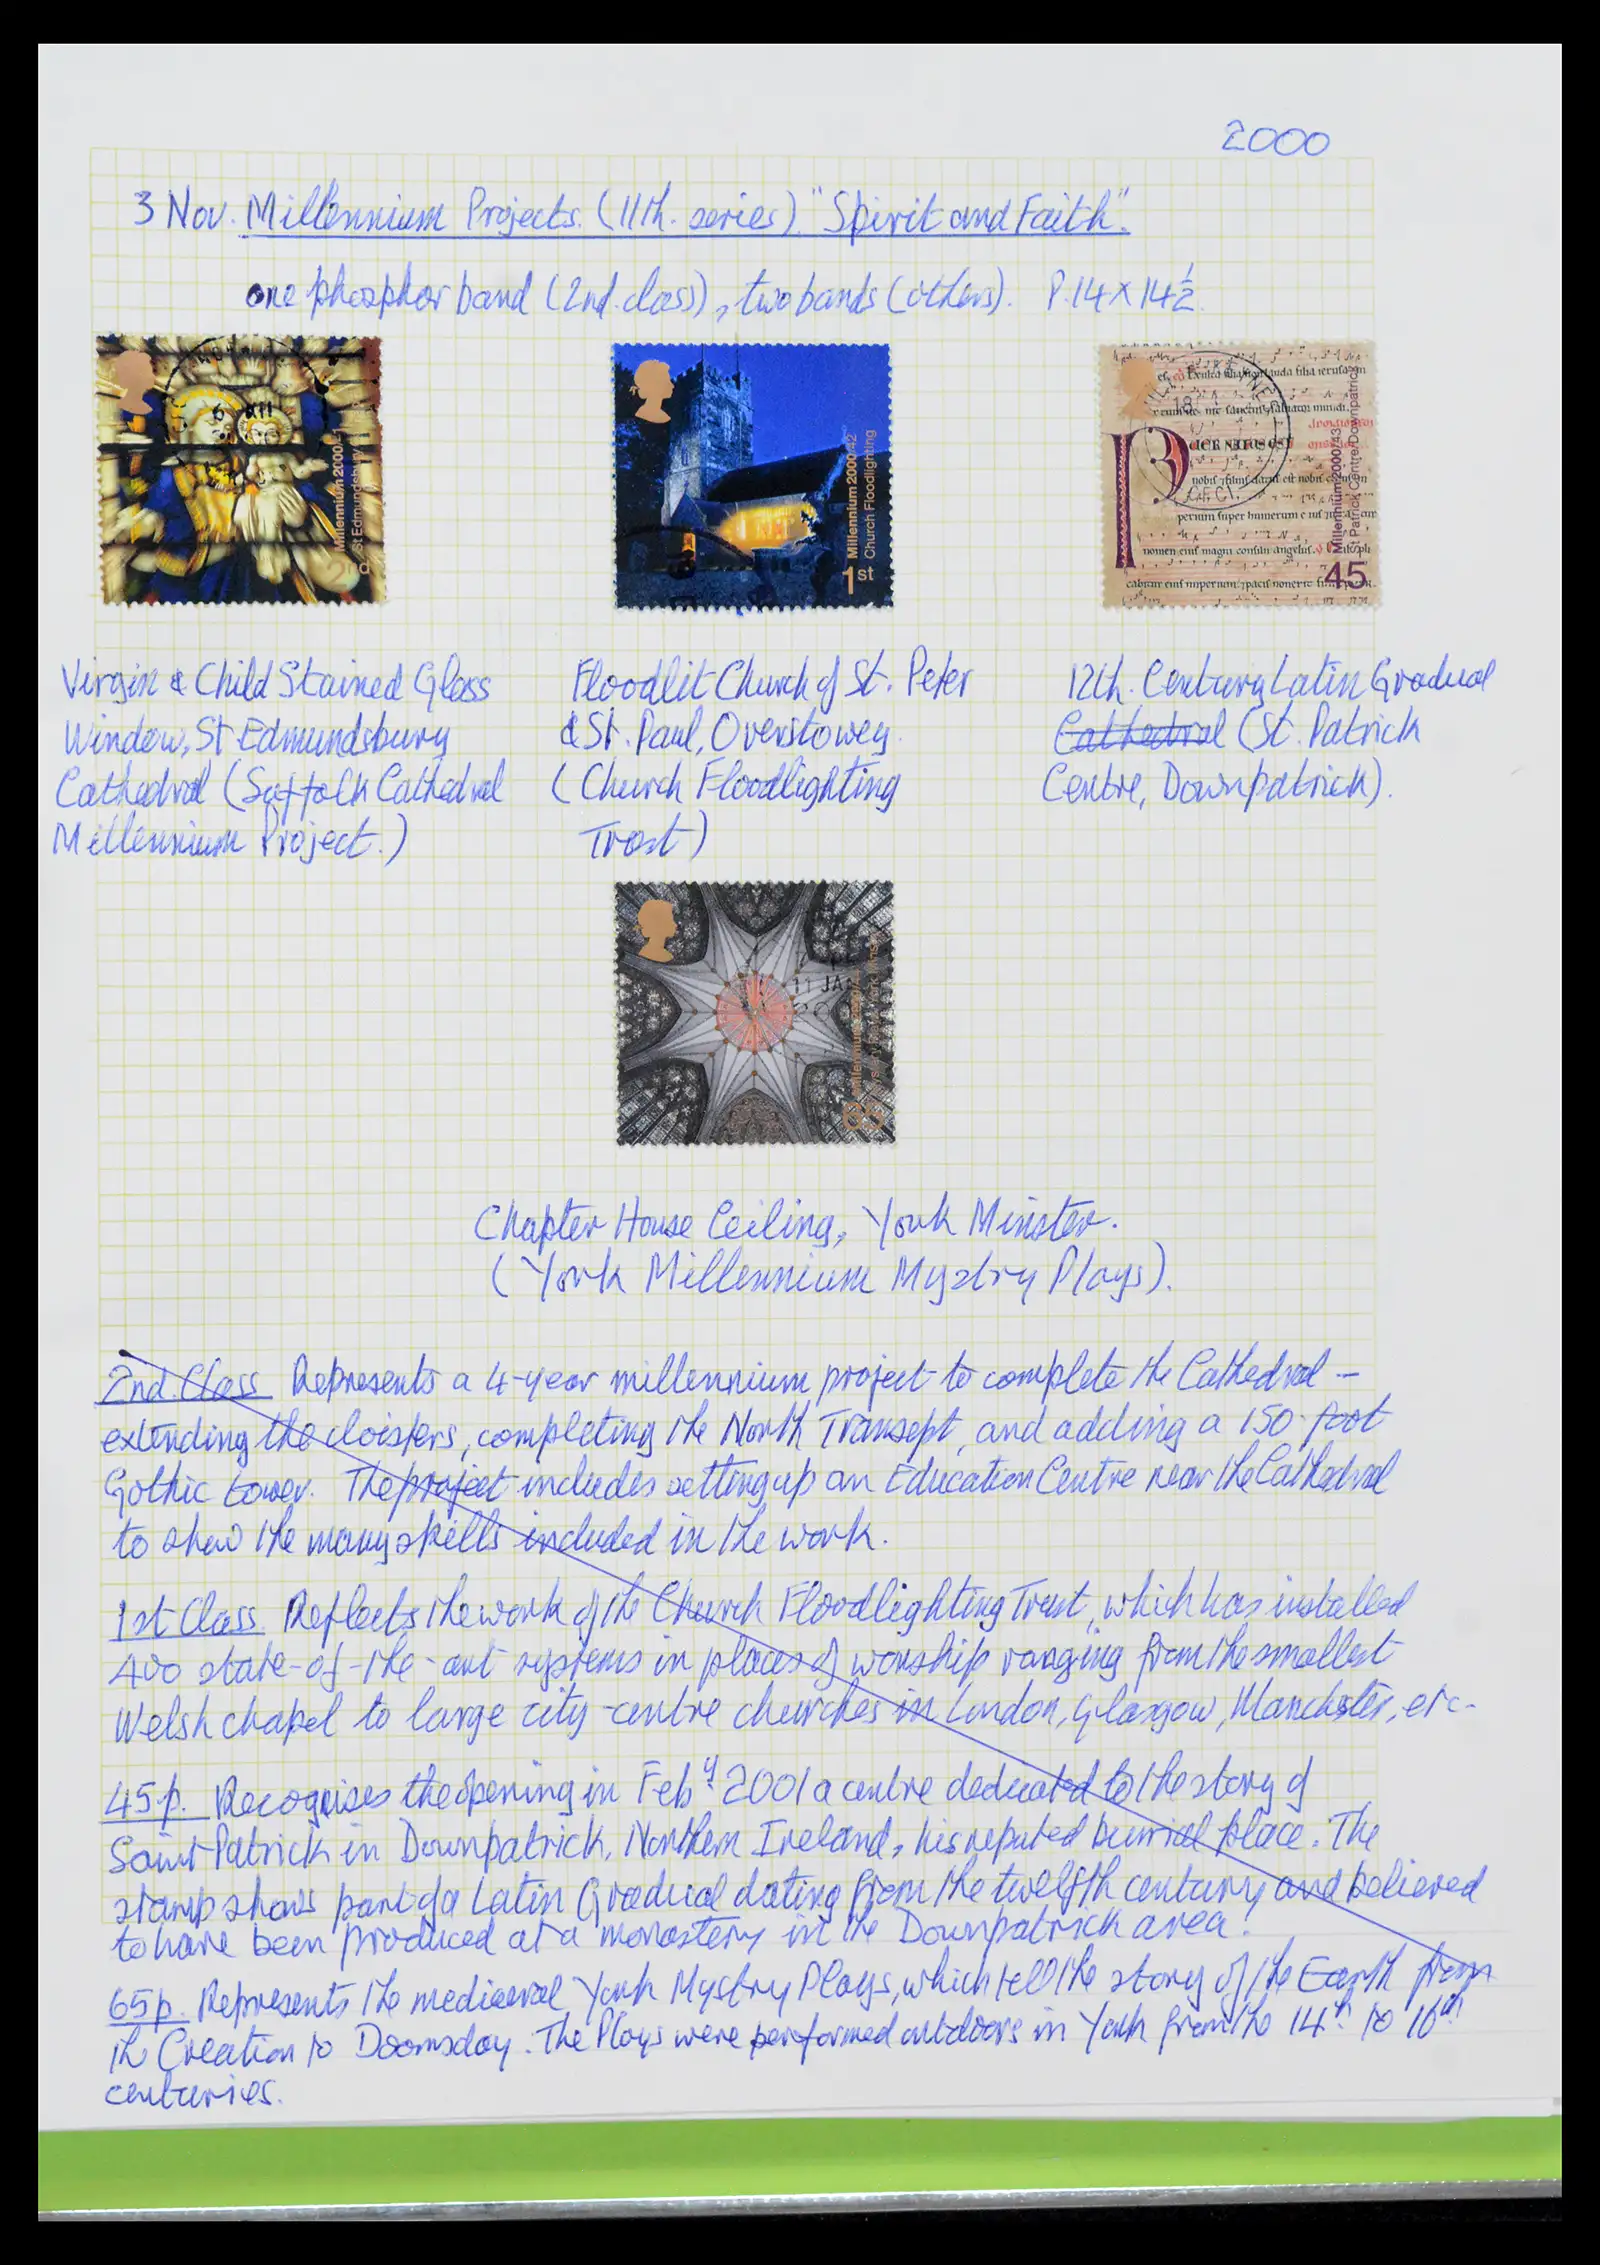 2000
3 Nov. Millennium Projects. (11th. series). "Spirit and Faith".
one phosphor band (2nd. class), two bands (others). P.14 x 14½.
6 XII
Millennium 2000/41
St Edmundsbury
2nd
Millennium 2000/42
Church Floodlighting
1st
Millennium 2000/43
St Patrick Centre/Downpatrick
45
Virgin & Child Stained Glass
Window, St Edmundsbury
Cathedral (Suffolk Cathedral
Millennium Project.)
Floodlit Church of St. Peter
& St. Paul, Overstowey.
(Church Floodlighting
Trust)
12th. Century Latin Gradual
Cathedral (St. Patrick
Centre, Downpatrick).
11 JA
65
Chapter House Ceiling, York Minster.
(York Millennium Mystry Plays).
2nd. Class Represents a 4-year millennium project to complete the Cathedral -
extending the cloisters, completing the North Transept, and adding a 150-foot
Gothic tower. The project includes setting up an Education Centre near the Cathedral
to show the many skills included in the work.
1st Class. Reflects the work of the Church Floodlighting Trust, which has installed
400 state-of-the-art systems in places of worship ranging from the smallest
Welsh chapel to large city-centre churches in London, Glasgow, Manchester, etc.
45p. Recognises the opening in Feby. 2001 a centre dedicated to the story of
Saint Patrick in Downpatrick, Northern Ireland, his reputed burrial place. The
stamp shows part of a Latin Gradual dating from the twelfth century and believed
to have been produced at a monastery in the Downpatrick area.
65p. Represents the mediaeval York Mystry Plays, which tell the story of the Earth from
the Creation to Doomsday. The Plays were performed outdoors in York from the 14th to 16th
centuries.